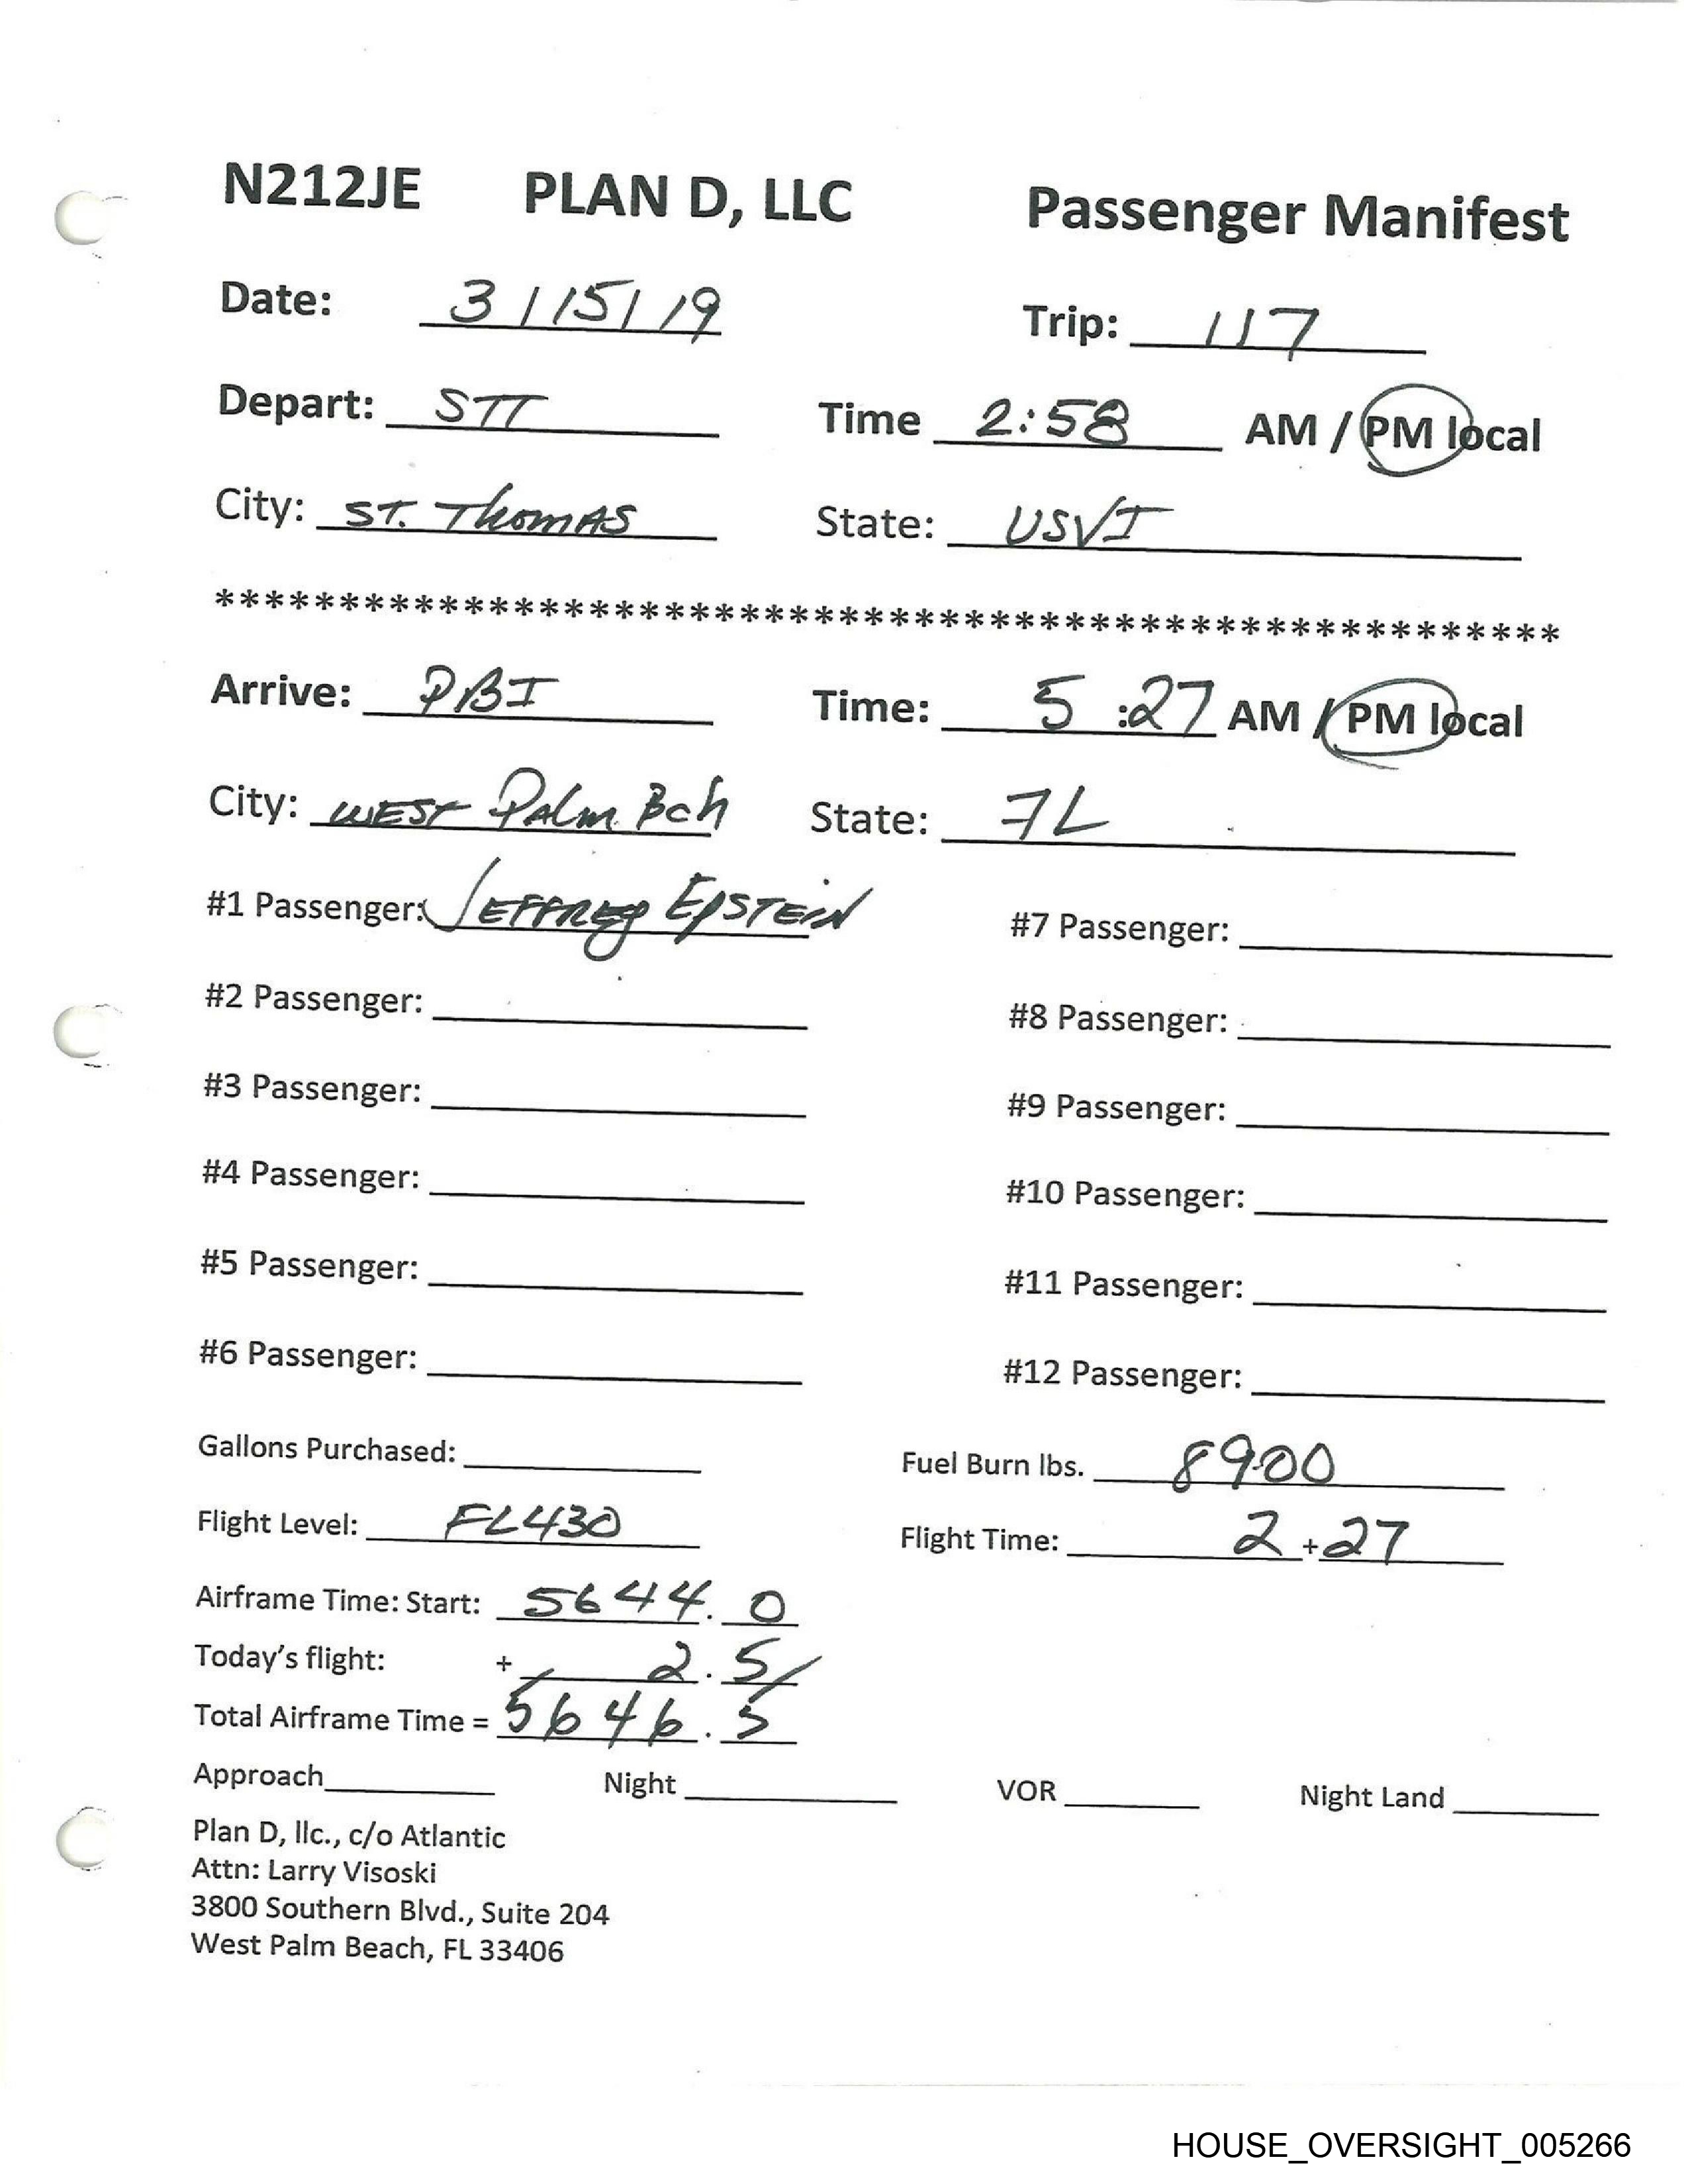 N212JE PLAN D, LLC Passenger Manifest
Date: 3/15/19 Trip: 117
Depart: STT Time 2:58 AM / PM local
City: ST. Thomas State: USVI
******************************************************
Arrive: PBI Time: 5:27 AM / PM local
City: WEST Palm Bch State: FL
#1 Passenger: JEFFREY EPSTEIN #7 Passenger:
#2 Passenger: #8 Passenger:
#3 Passenger: #9 Passenger:
#4 Passenger: #10 Passenger:
#5 Passenger: #11 Passenger:
#6 Passenger: #12 Passenger:
Gallons Purchased: Fuel Burn lbs. 8900
Flight Level: FL430 Flight Time: 2+27
Airframe Time: Start: 5644.0
Today's flight: + 2.5
Total Airframe Time = 5646.5
Approach Night VOR Night Land
Plan D, llc., c/o Atlantic
Attn: Larry Visoski
3800 Southern Blvd., Suite 204
West Palm Beach, FL 33406
HOUSE_OVERSIGHT_005266